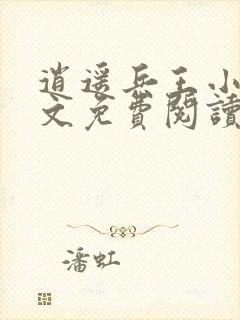 逍遥兵王小
文免费阅讀
潘虹